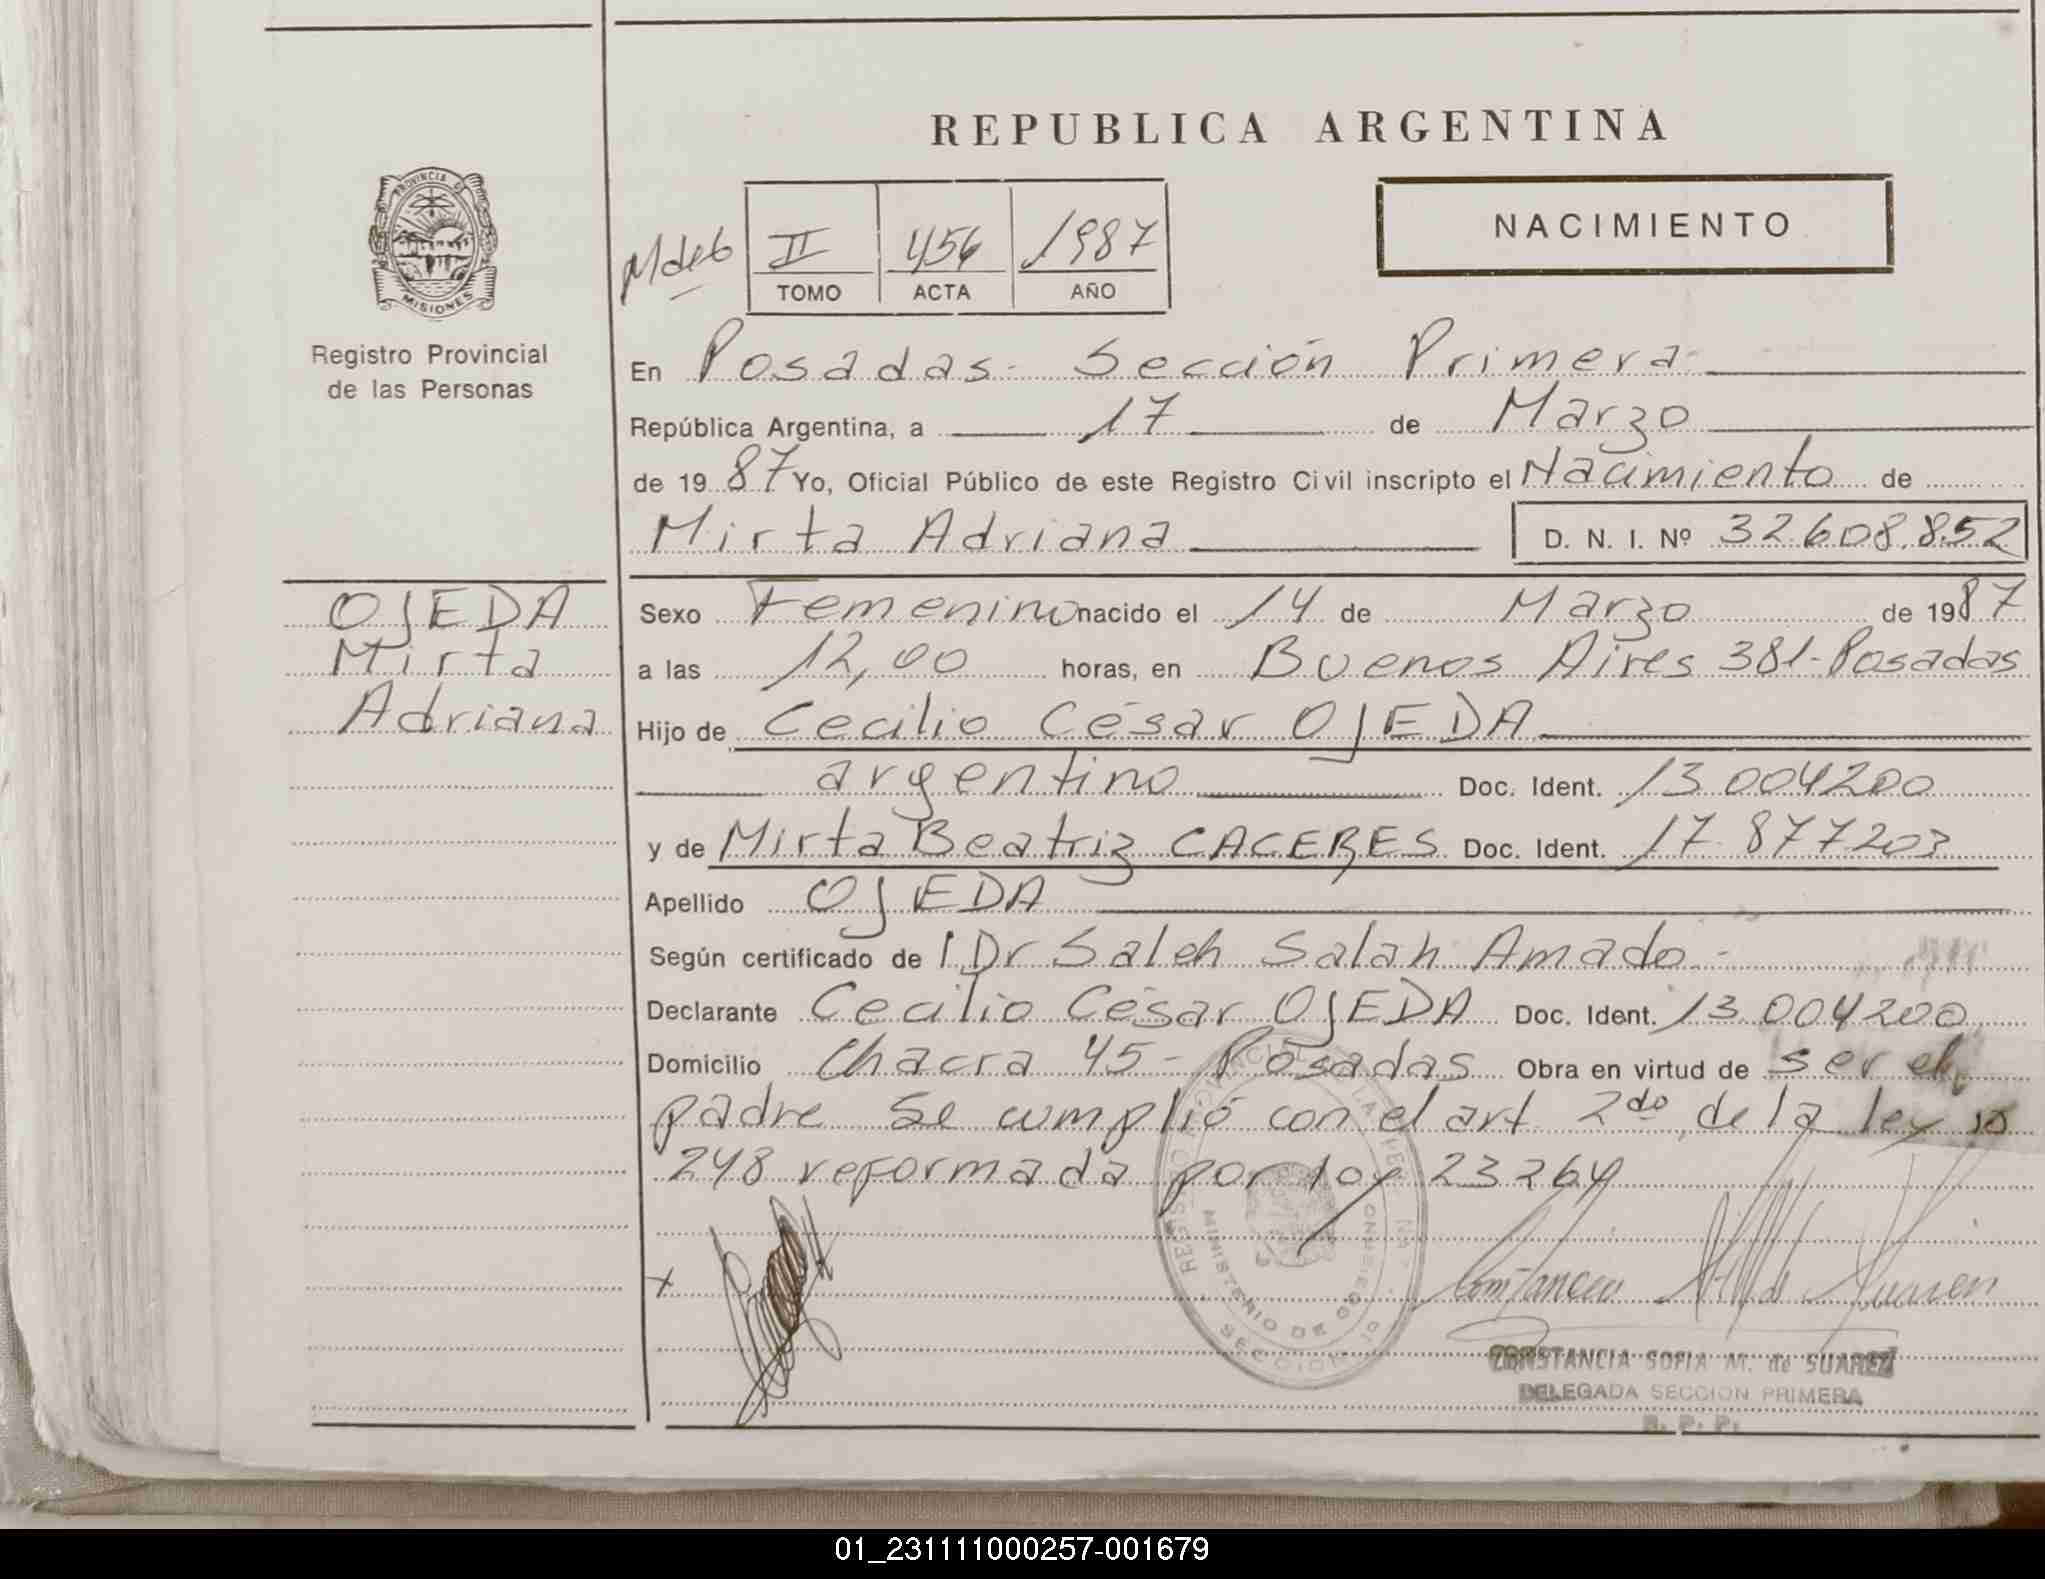 REPUBLICA ARGENTINA
PROVINCIA DE
MISIONES
Registro Provincial
de las Personas
Mdeb II 456 1987
TOMO ACTA AÑO
NACIMIENTO
En Posadas - Sección Primera
República Argentina, a 17 de Marzo
de 1987 Yo, Oficial Público de este Registro Civil inscripto el Nacimiento de
Mirta Adriana D. N. I. Nº 32608.852
OJEDA
Mirta
Adriana
Sexo Femenino nacido el 14 de Marzo de 1987
a las 12,00 horas, en Buenos Aires 381-Posadas
Hijo de Cecilio César OJEDA
argentino Doc. Ident. 13 004200
y de Mirta Beatriz CACERES Doc. Ident. 17 877203
Apellido OJEDA
Según certificado de l Dr Saleh Salah Amado -
Declarante Cecilio César OJEDA Doc. Ident. 13 004200
Domicilio Chacra 45 - Posadas Obra en virtud de ser el
padre Se cumplió con el art 2do de la ley 18
248 reformada por ley 23264
MINISTERIO DE GOBIERNO
SECCION
CONSTANCIA SOFIA M. de SUAREZ
DELEGADA SECCION PRIMERA
R. P. P.
01_231111000257-001679